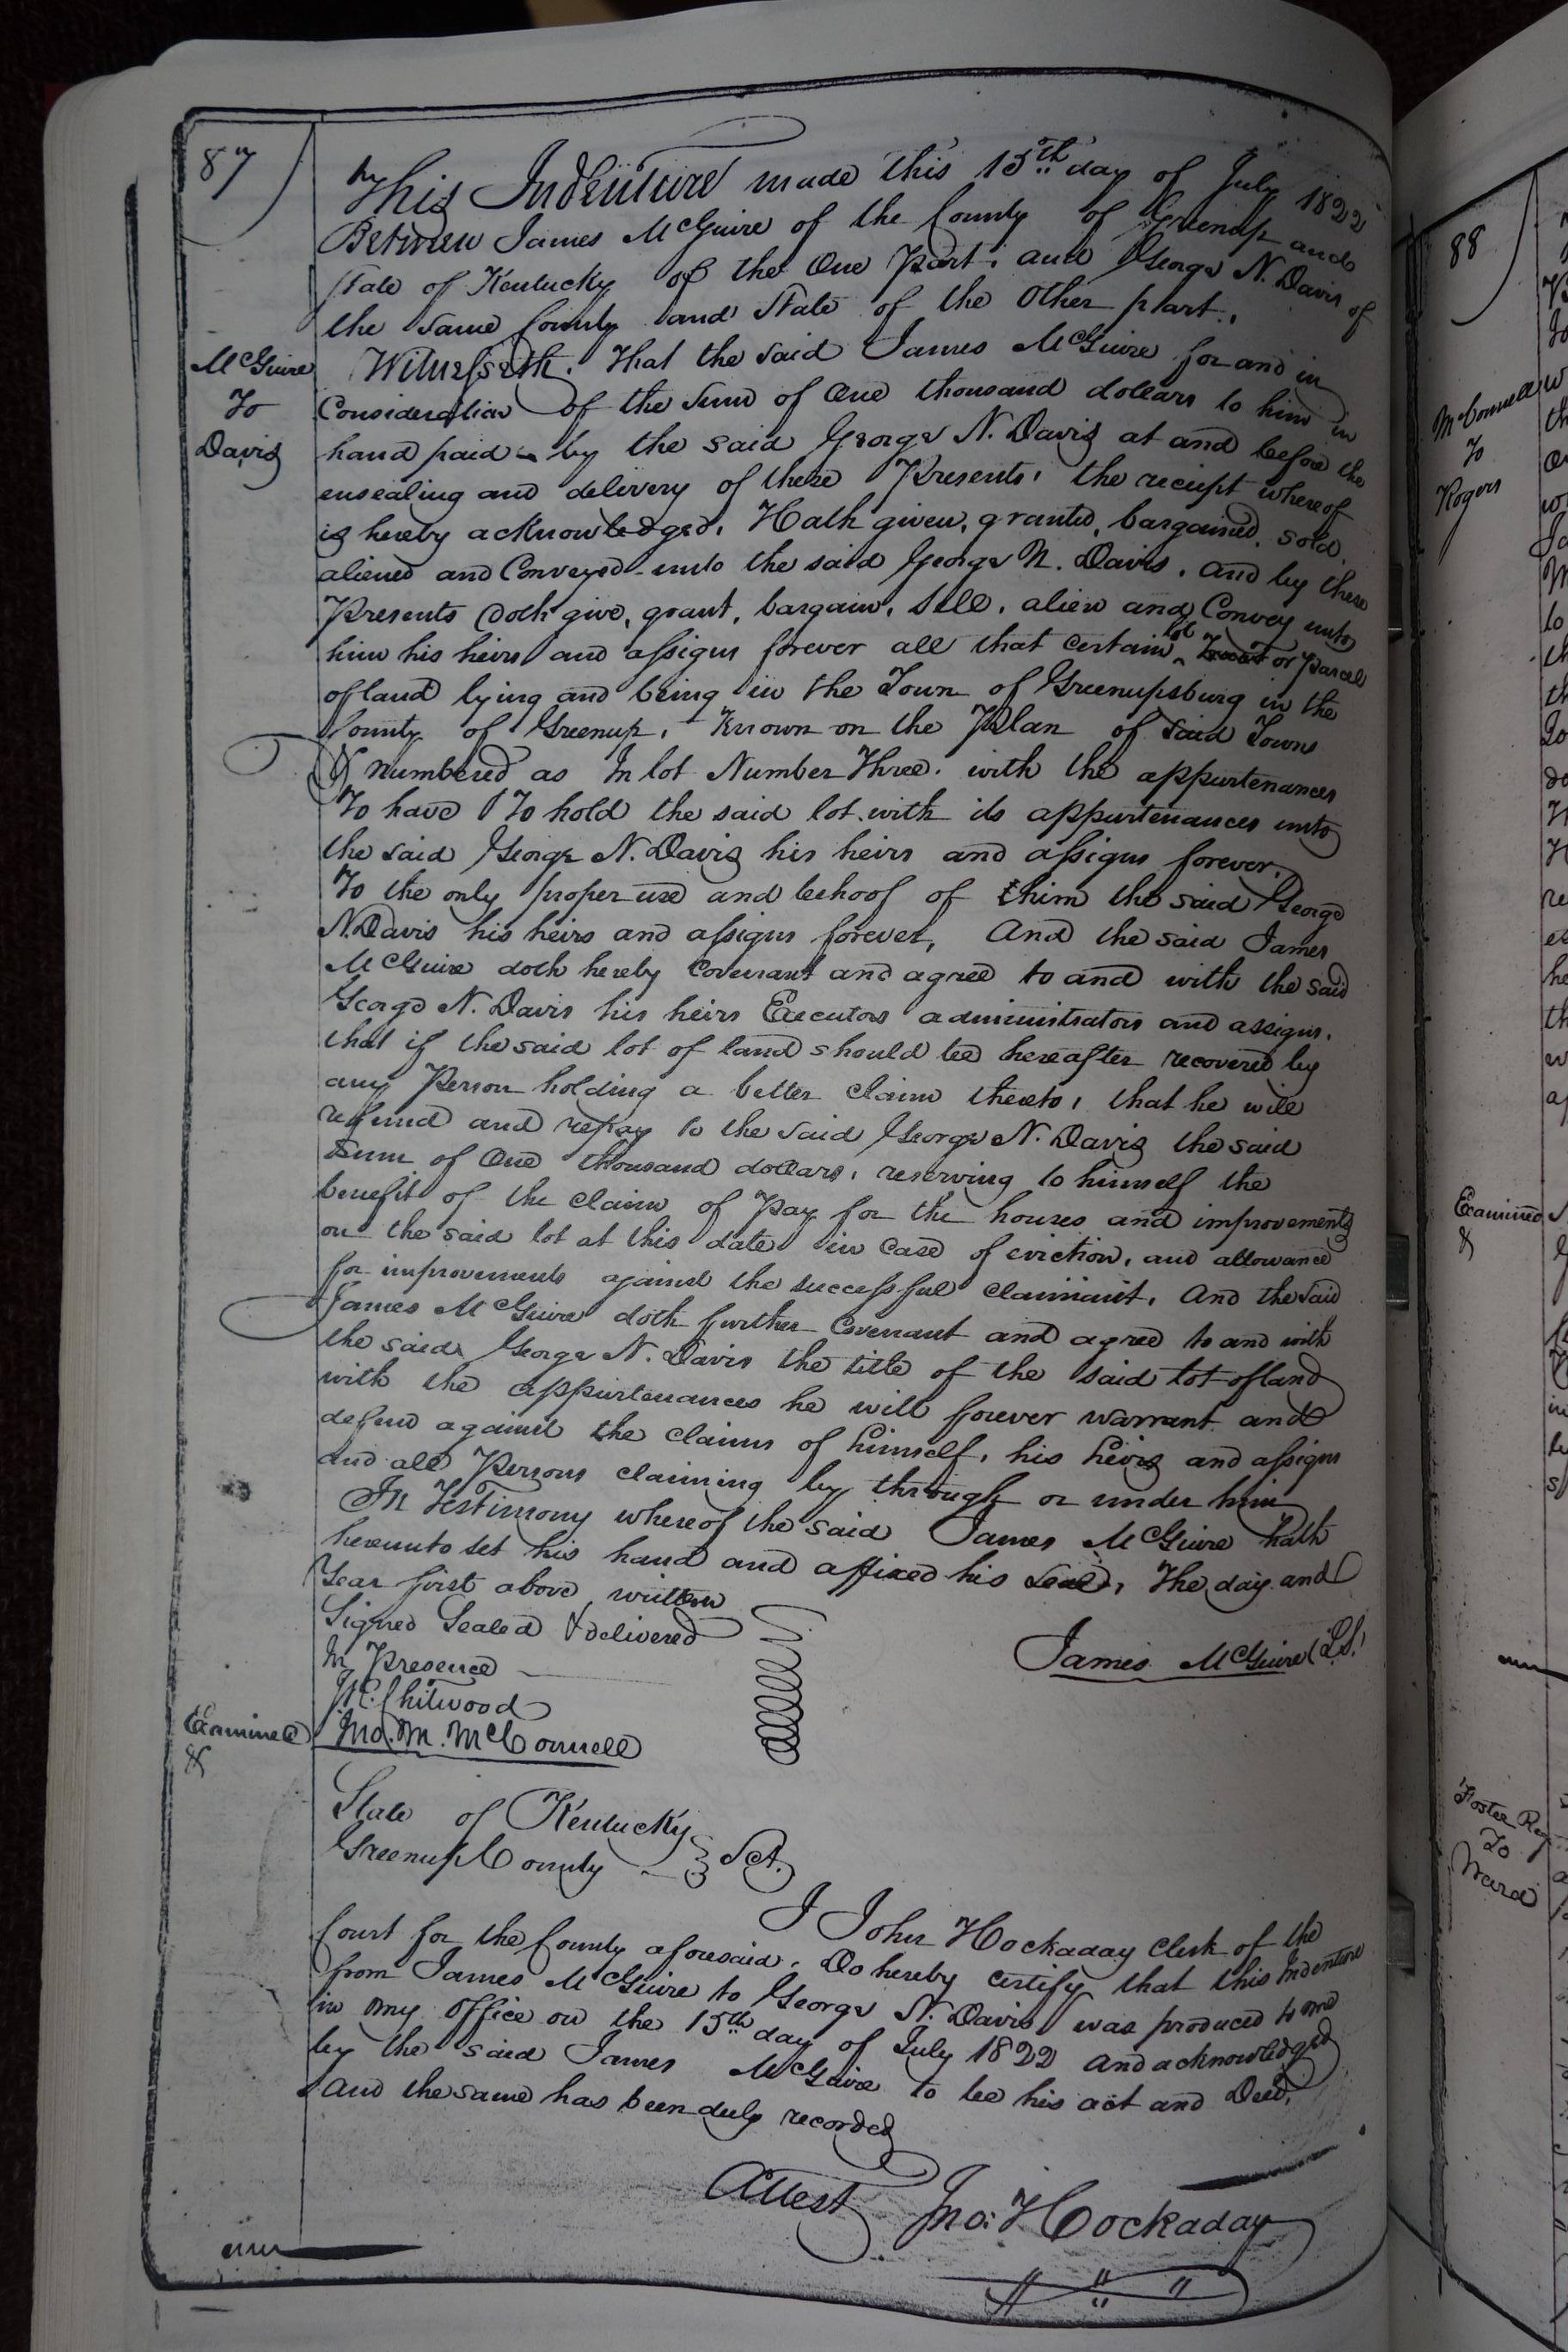 87
This Indenture made this 15th day of July 1822
Between James McGuire of the County of Greenup and
State of Kentucky of the One Part, and George N. Davis of
the same County and State of the Other part.
McGuire
To
Davis
Witnesseth, That the said James McGuire for and in
Consideration of the Sum of One thousand dollars to him in
hand paid by the said George N. Davis at and before the
ensealing and delivery of these Presents, the reciept whereof
is hereby acknowledged, Hath given, granted, bargained, sold,
aliened and Conveyed unto the said George N. Davis, and by these
Presents doth give, grant, bargain, Sell, alien and Convey unto
him his heirs and assigns forever all that certain lot or parcel
of land lying and being in the Town of Greenupsburg in the
County of Greenup, Known on the Plan of Said Town
& numbered as In lot Number Three. with the appurtenances
To have & To hold the said lot with its appurtenances unto
the said George N. Davis his heirs and assigns forever.
To the only proper use and behoof of him the said George
N. Davis his heirs and assigns forever, And the said James
McGuire doth hereby Covenant and agree to and with the said
George N. Davis his heirs Executors administrators and assigns.
that if the said lot of land should be hereafter recovered by
any Person holding a better Claim thereto, that he will
refund and repay to the said George N. Davis the said
Sum of One thousand dollars, reserving to himself the
benefit of the claim of Pay for the houses and improvements
on the said lot at this date in Case of eviction, and allowance
for improvements against the successful Claimant. And the said
James McGuire doth further Covenant and agree to and with
the said George N. Davis the title of the said lot of land
with the appurtenances he will forever warrant and
defend against the claims of himself, his heirs and assigns
and all Persons claiming by through or under him
In Testimony whereof the said James McGuire hath
hereunto set his hand and affixed his Seal, The day and
Year first above written
Signed Sealed & delivered
In Presence
James McGuire (L.S.)
Chitwood
Jno. M. McConnell
Examined
&
State of Kentucky
Greenup County Sct.
I John Hockaday Clerk of the
Court for the County aforesaid, Do hereby certify that this Indenture
from James McGuire to George N. Davis was produced to me
in my office on the 15th day of July 1822 and acknowledged
by the said James McGuire to be his act and Deed,
And the same has been duly recorded
Attest Jno. Hockaday
88
McConnell
To
Rogers
Examined
&
Foster
To
Ward